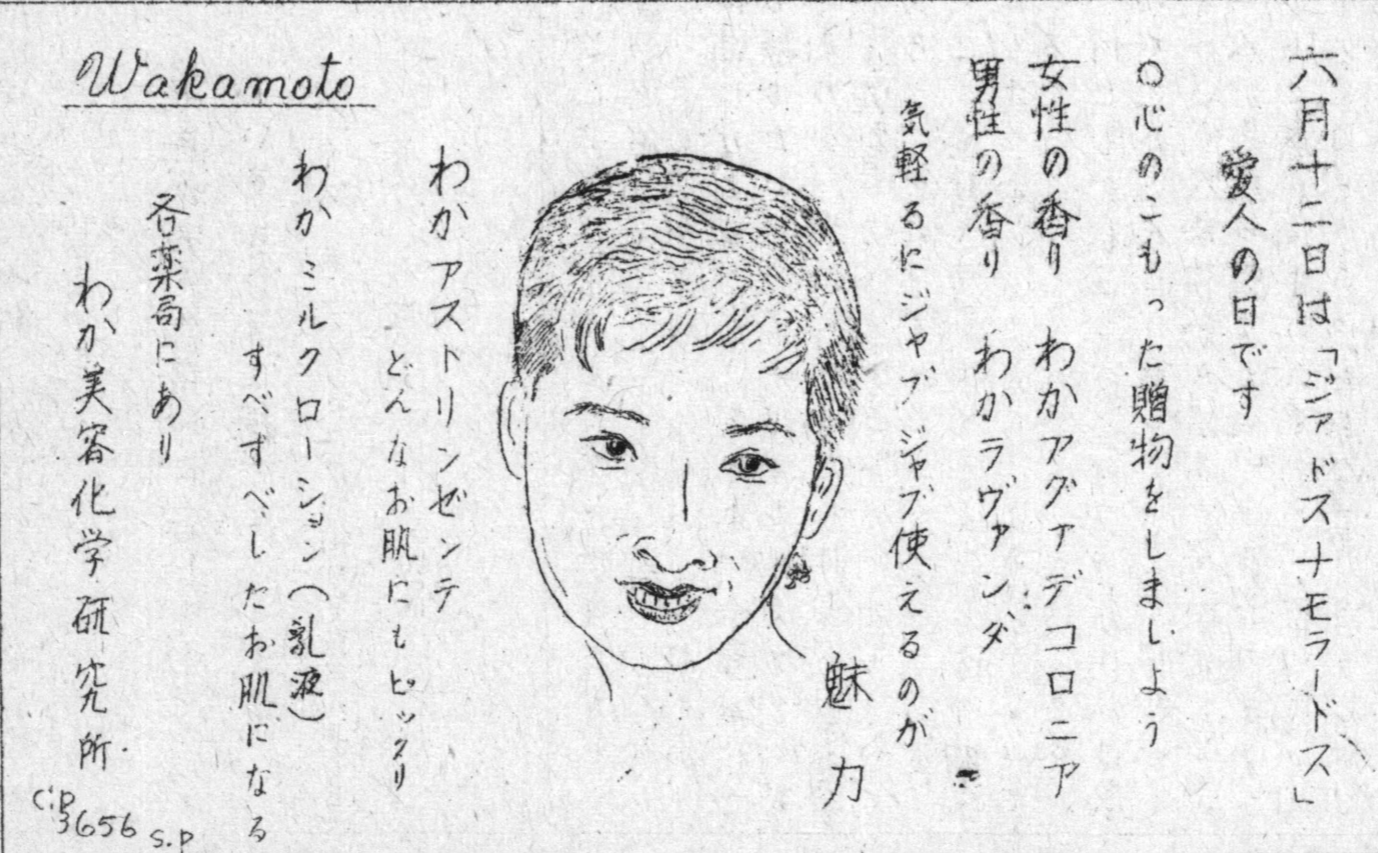 六月十二日は「ジァ ドス ナモラードス」
愛人の日です
○心のこもった贈物をしましよう
女性の香り わかアグァデコロニア
男性の香り わかラヴァンダ
気軽るにジャブジャブ使えるのが
魅力
わかアストリンゼンテ
どんなお肌にもピックリ
わかミルクローション(乳液)
すべすべしたお肌になる
各薬局にあり
わか美容化学研究所
Wakamoto
C.P
3656 S.P